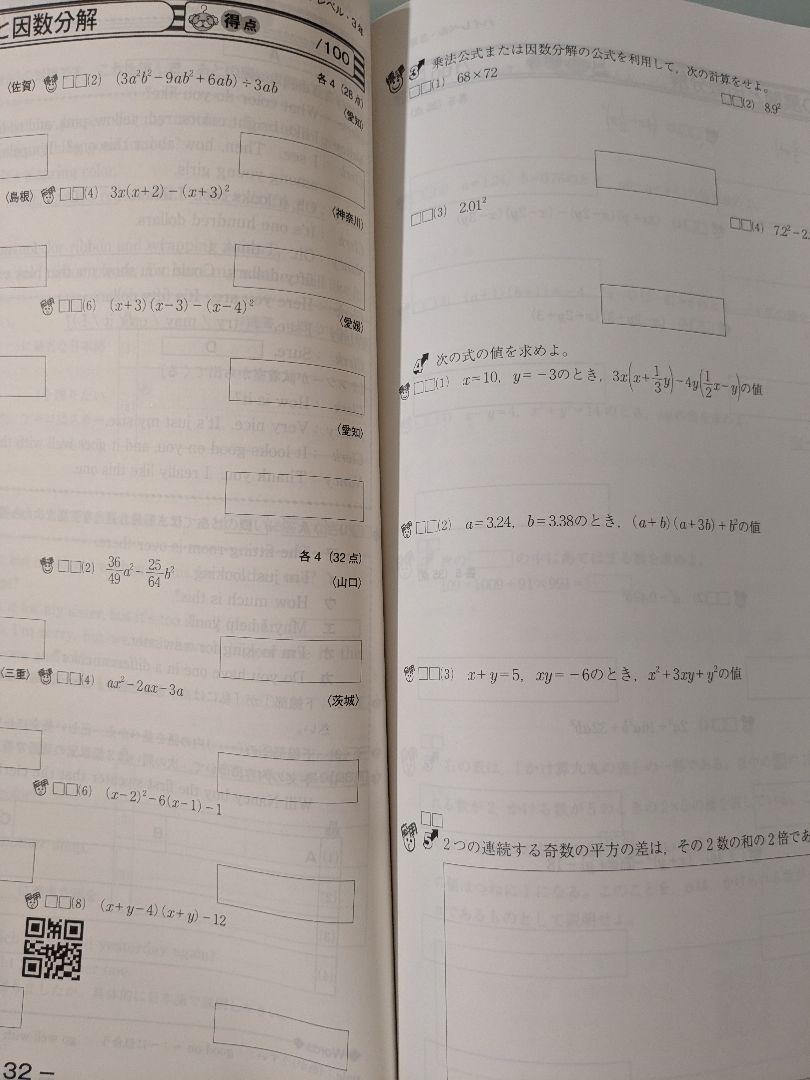 と因数分解
レベル・3年
得点
/100
各4(28点)
〈佐賀〉 □□(2) (3a²b²−9ab²+6ab)÷3ab
〈愛知〉
〈島根〉 □□(4) 3x(x+2)−(x+3)²
〈神奈川〉
□□(6) (x+3)(x−3)−(x−4)²
〈愛媛〉
〈愛知〉
各4(32点)
□□(2) 36/49a²−25/64b²
〈山口〉
〈三重〉 □□(4) ax²−2ax−3a
〈茨城〉
□□(6) (x−2)²−6(x−1)−1
□□(8) (x+y−4)(x+y)−12
32 −
3 乗法公式または因数分解の公式を利用して,次の計算をせよ。
□□(1) 68×72
□□(2) 8.9²
□□(3) 2.01²
□□(4) 7.2²−2.
4 次の式の値を求めよ。
□□(1) x=10, y=−3のとき, 3x(x+1/3y)−4y(1/2x−y)の値
□□(2) a=3.24, b=3.38のとき, (a+b)(a+3b)+b²の値
□□(3) x+y=5, xy=−6のとき, x²+3xy+y²の値
□□
5 2つの連続する奇数の平方の差は,その2数の和の2倍であ